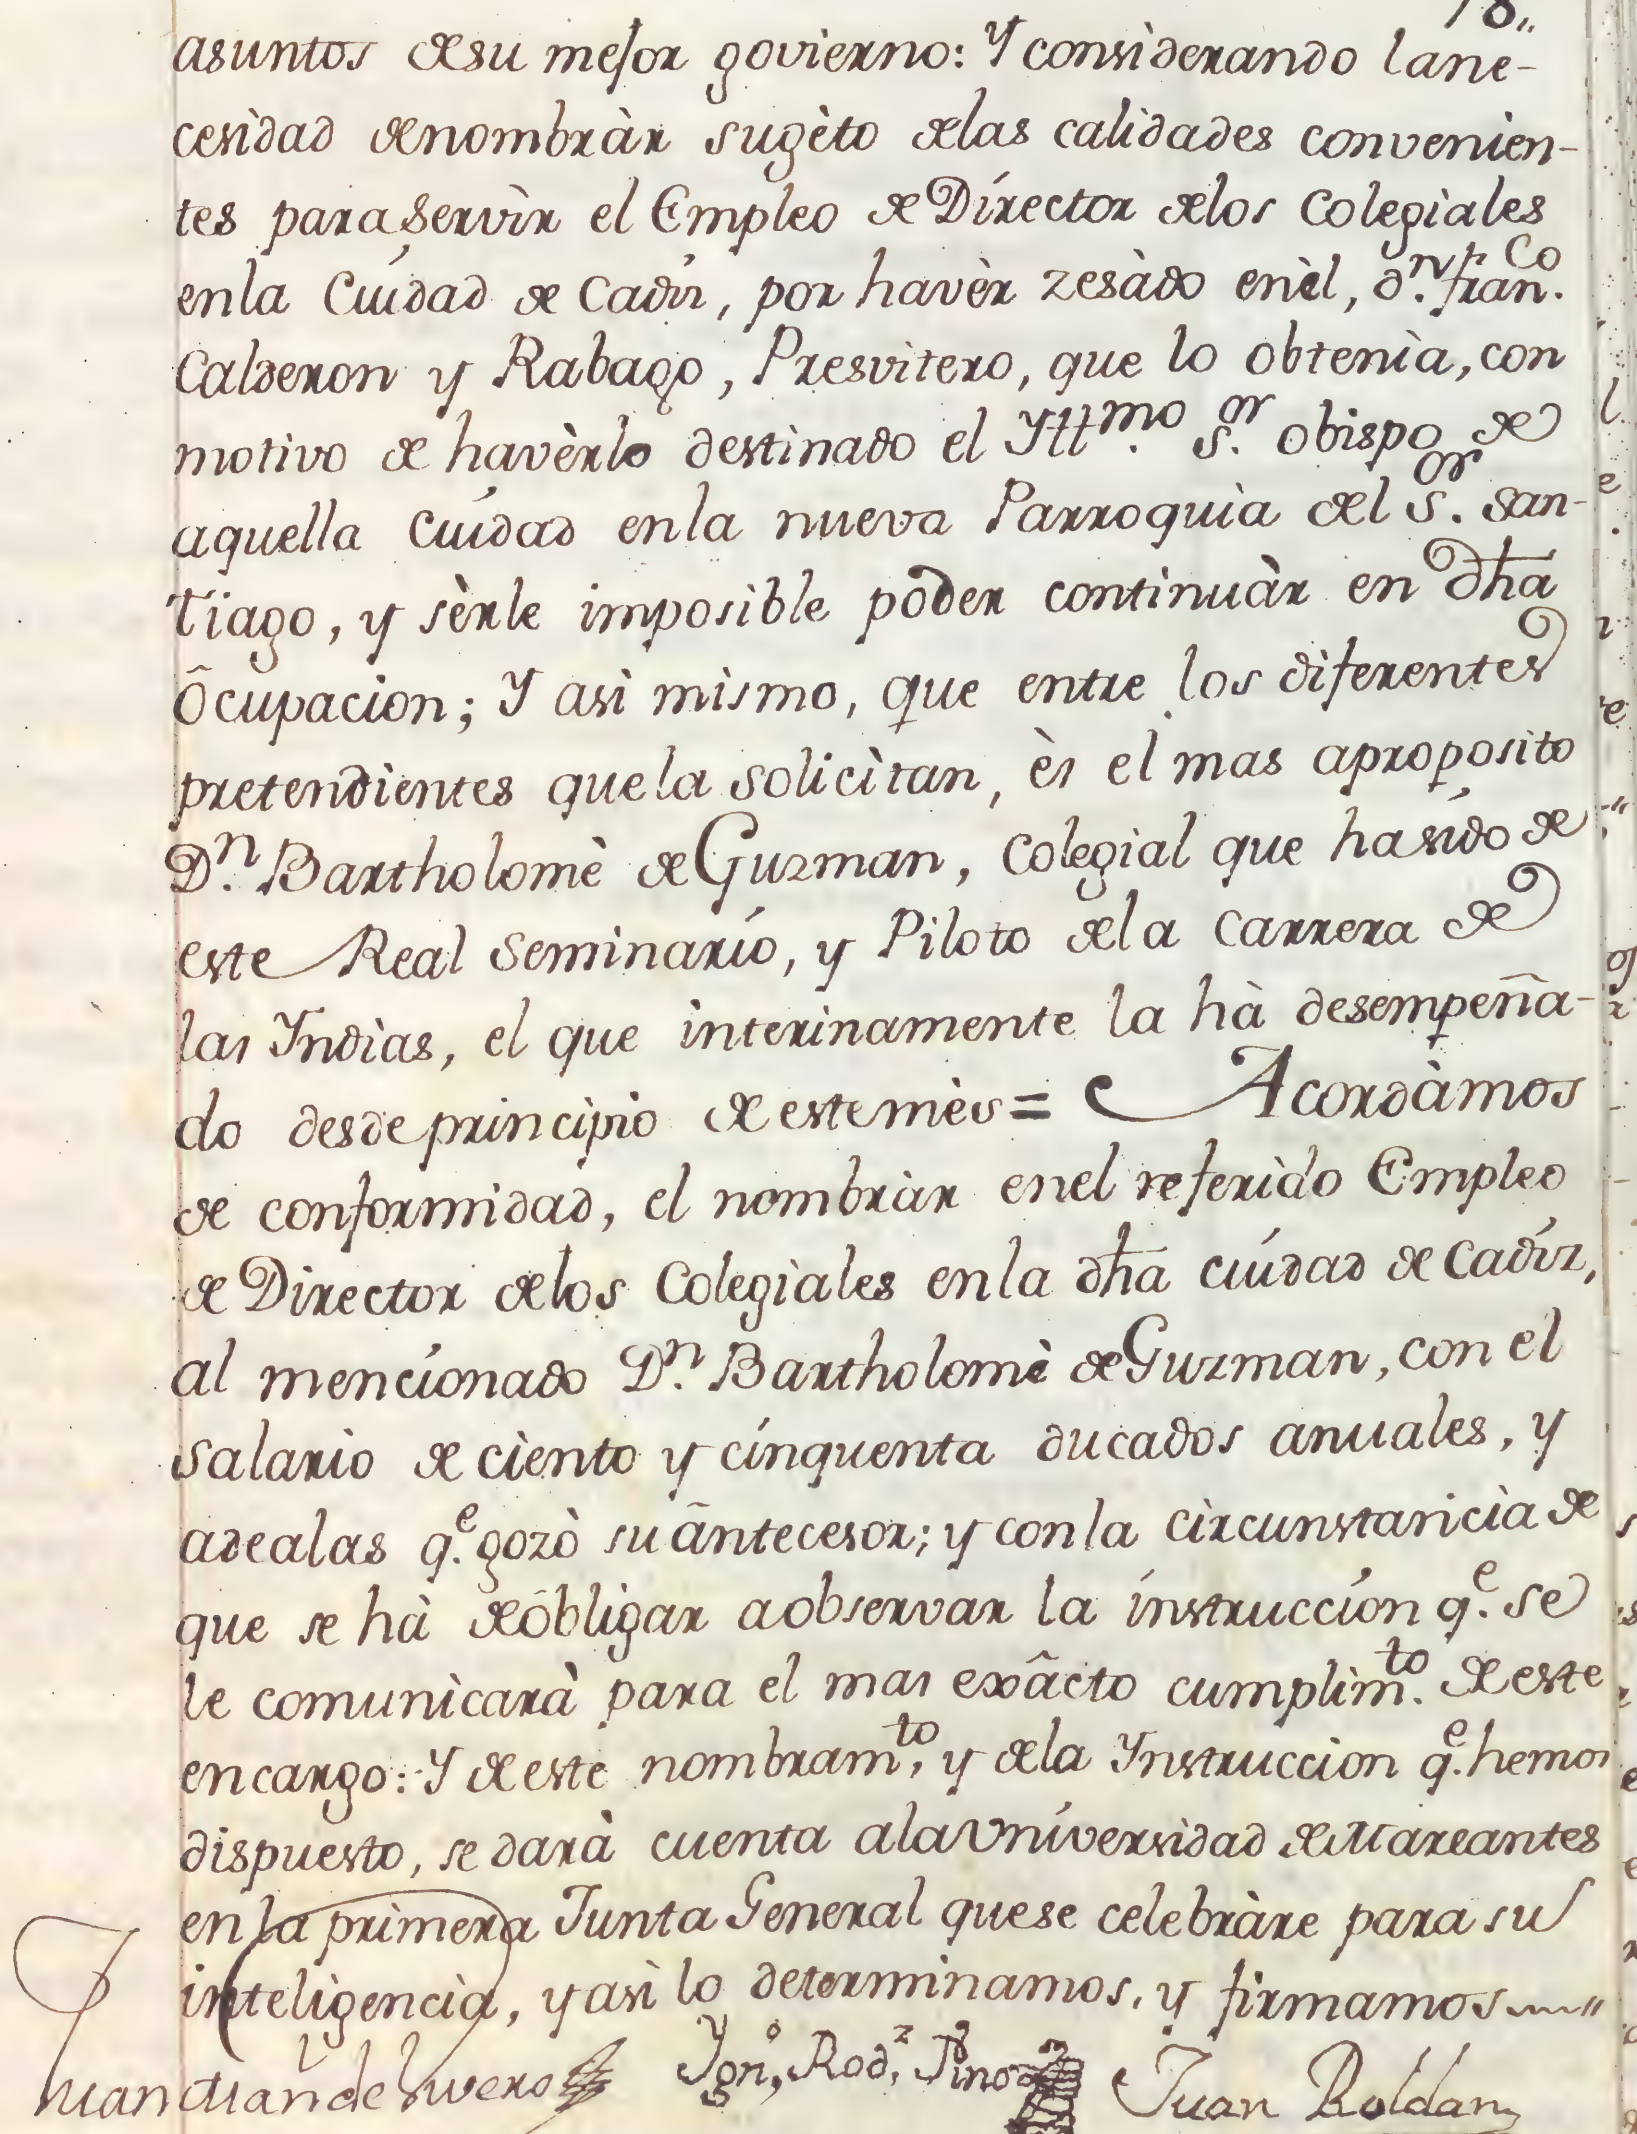 78,,
asuntos de su mejor govierno: Y considerando la ne-
cesìdad de nombràr sugèto de las calìdades convenien-
tes para servìr el Empleo de Dírector de los Colegiales
en la Cuídad de Cadíz, por havèr zesàdo en èl, dⁿ. franᶜᵒ.
Calderon y Rabago, Presvitero, que lo obtenìa, con
motivo de havèrlo destinado el Yllᵐᵒ. Sᵒʳ. obispo de
aquella Cuídad en la nueva Parroquìa del Sᵒʳ. San-
Tiago, y sèrle imposible poder continuàr en dha
Ôcupacion; Y asì mismo, que entre los diferentes
pretendientes que la solicìtan, ès el mas aproposito
Dⁿ. Bartholomè de Guzman, Colegial que ha sído de
este Real Seminarío, y Piloto de la Carrera de
las Yndìas, el que interinamente la hà desempeña-
do desde principio de este mès = Acordàmos
de conformidad, el nombràr en el referìdo Empleo
de Director de los Colegiales en la dha cíudad de Cadíz,
al mencíonado Dⁿ. Bartholomè de Guzman, con el
salario de cìento y cínquenta ducados anuales, y
adealas qᵉ. gozò su ântecesor; y con la cìrcunstancìa de
que se hà de ôbligar a observar la ínstruccíon qᵉ. se
le comunìcarà para el mas exâcto cumplimᵗᵒ. de este
encargo: Y de este nombramᵗᵒ, y de la Ynstruccion qᵉ. hemos
dispuesto, se darà cuenta a la Uníversidad de Mareantes
en la prìmera Junta General que se celebràre para su
inteligencìa, y asì lo determinamos, y firmamos
Juan Man de Vivero Ygnº, Rodᶻ, Pino Juan Roldan